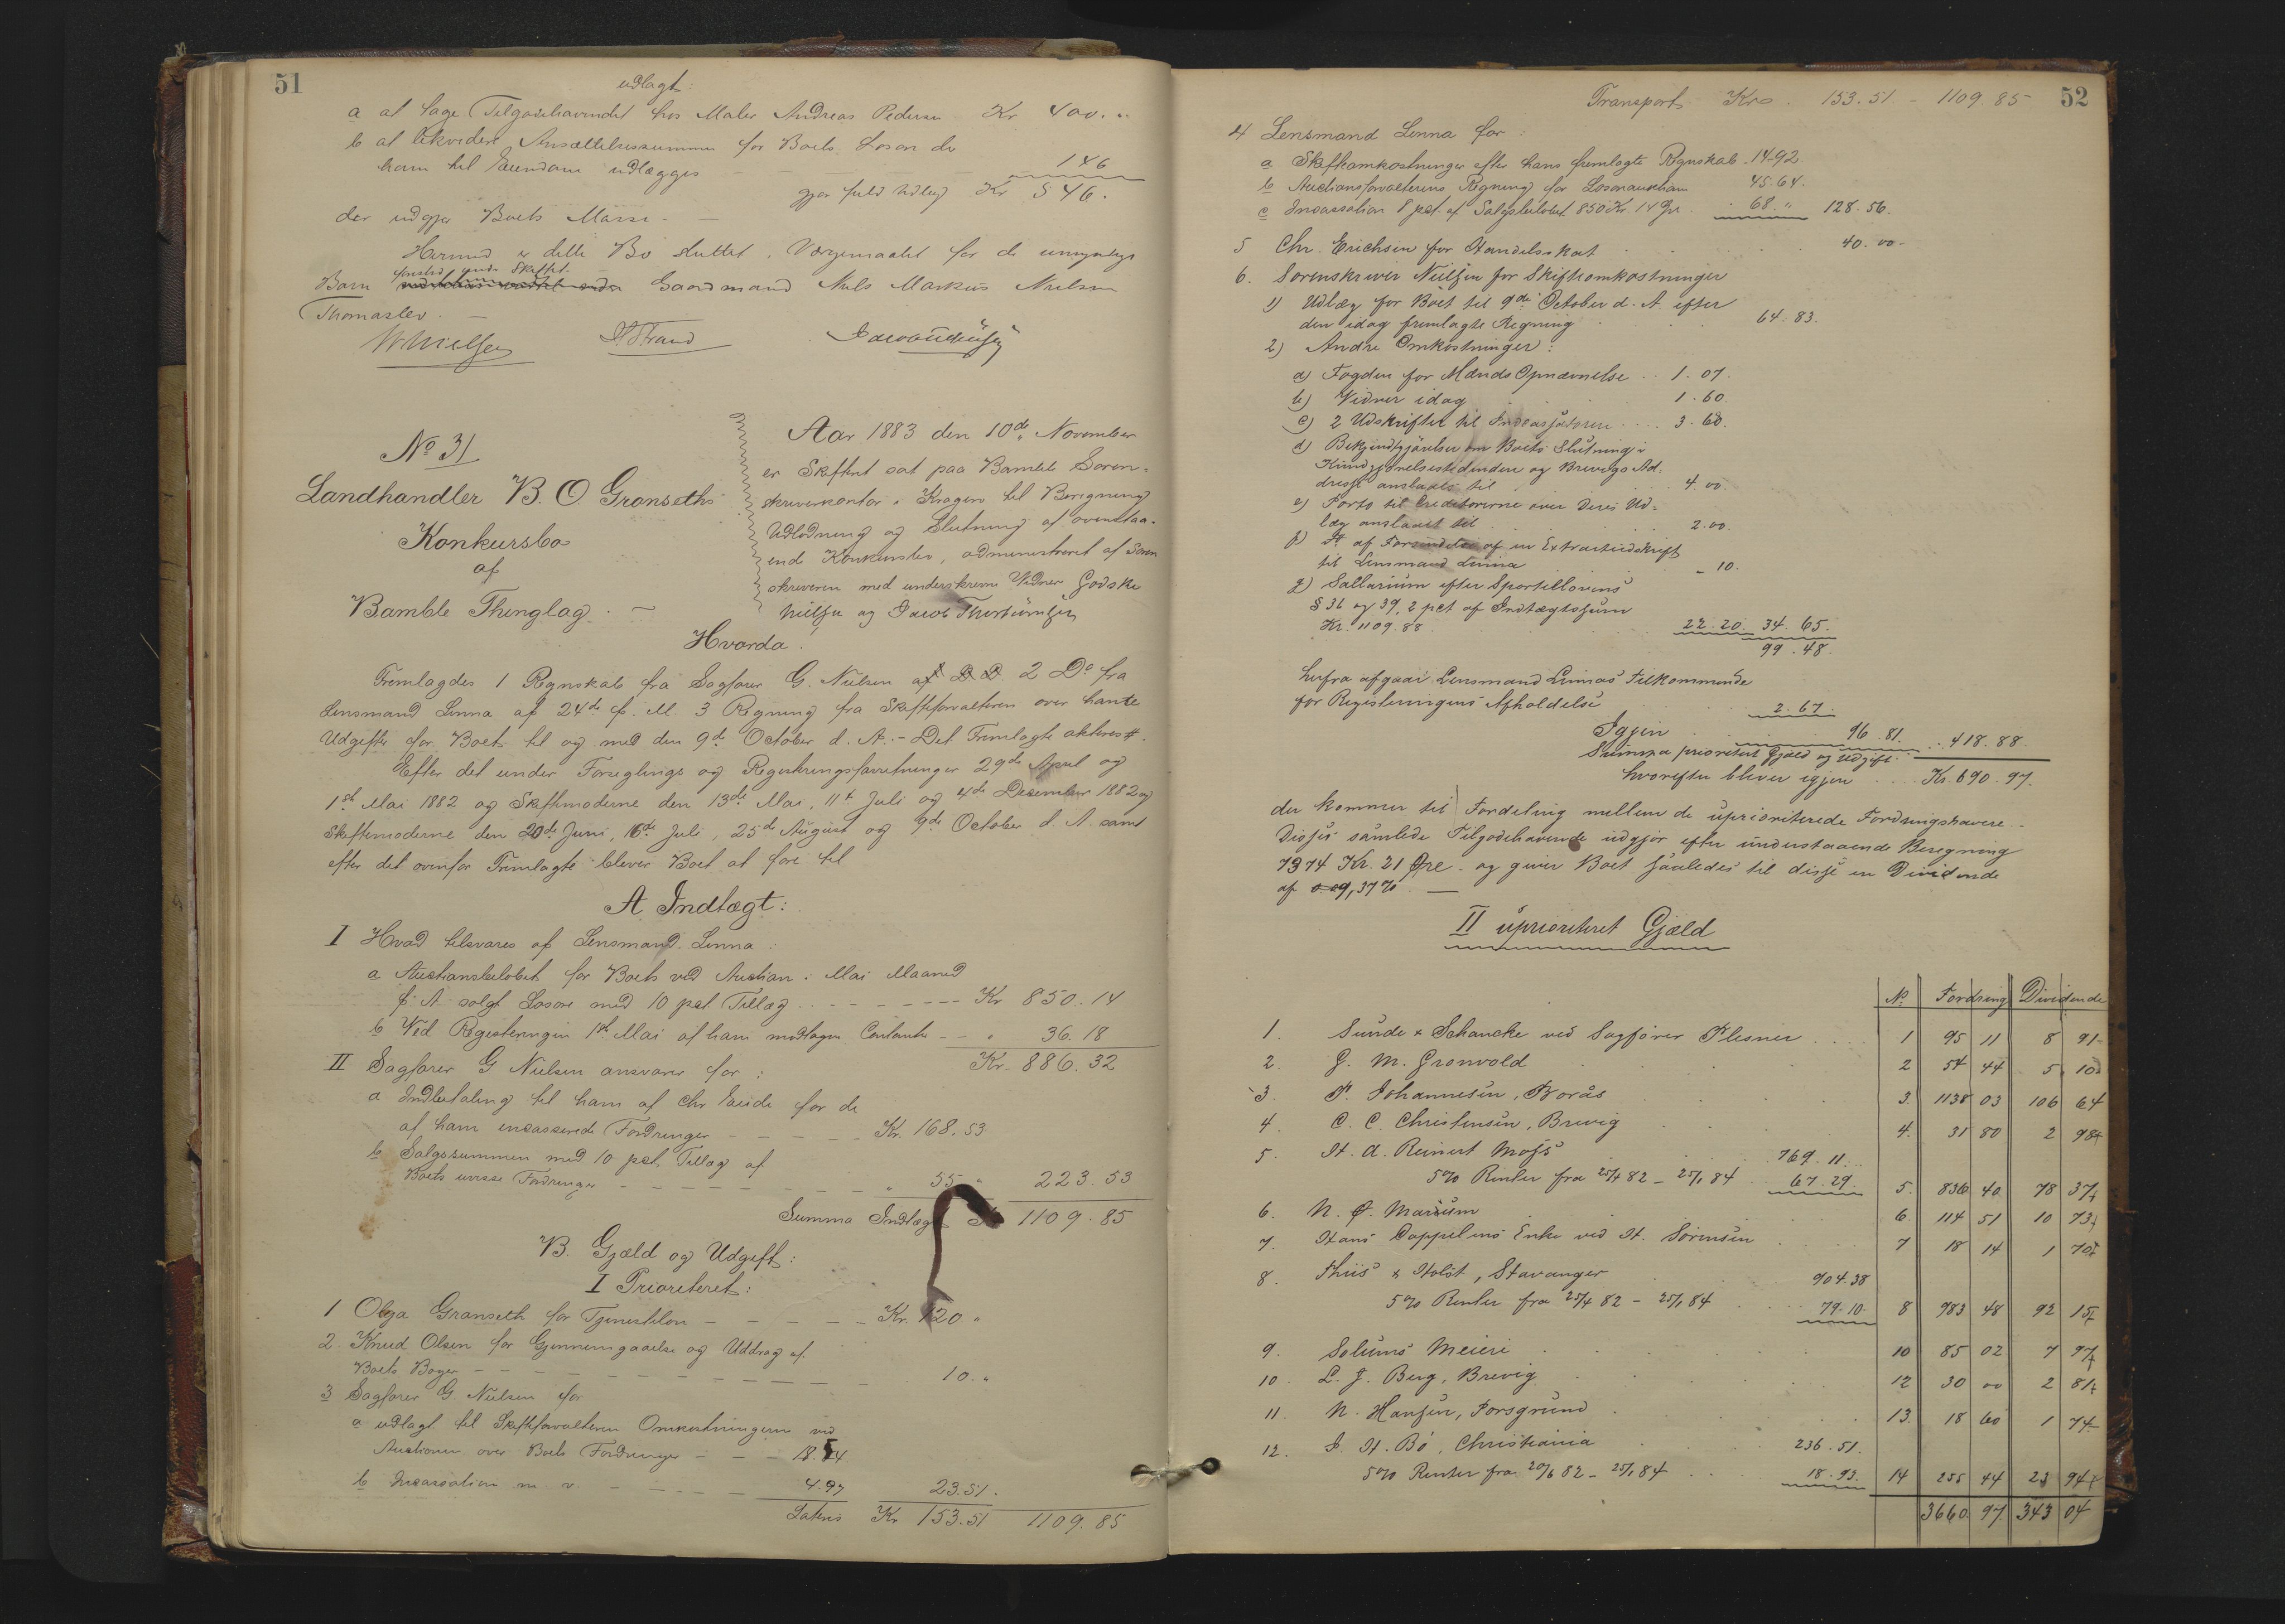 51
udlagt:
a at tage Tilgodehavendet hos Maler Andreas Pedersen Kr 400. "
b at likvidere Ansættelsessummen for Boets Løsøre der
ham til Eiendom udlægges 146
gjør fuld Udlæg Kr 546.
der udgjør Boets Masse. —
Hermed er dette Bo sluttet. Værgemaalet for de umyndige
Børn Gaardmand Niels Markus Nielsen
Thomaslev. —
WNielsen
No 31
Landhandler B. O. Granseths
Konkursbo
af
Bamble Thinglag. —
Aar 1883 den 10de November
er Skifteret sat paa Bamble Soren-
skriverkontor i Kragerø til Beregning
Udlodning og Slutning af ovenstaa-
ende Konkursbo, administreret af Soren
skriveren med underskrevne Vidner Godske
Nielsen og Jacob Thorbiørnsen
Hvorda:
Fremlagdes 1 Regnskab fra Sagfører G. Nielsen 2 Do fra
Lensmand Linna af 24de f. M. 3 Regning fra Skifteforvalteren over hante
Udgifter for Boet til og med den 9de October d. A. - Det Fremlagte akteres #.
Efter det under Forseglings og Registreringsforretninger 29de April og
1ste Mai 1882 og Skiftemøderne den 13de Mai, 11te Juli og 4de Desember 1882 og
Skiftemøderne den 20de Juni, 16de Juli, 25de August og 9de October d. A. samt
efter det ovenfor Fremlagte bliver Boet at føre til
A Indtægt:
I Hvad tilsvares af Lensmand Linna:
a Auctionsbeløbet for Boets ved Auction i Mai Maaned
f. A. solgt Løsøre med 10 pct Tillæg - - - - - Kr 850.14
b Ved Registeringen 1ste Mai af ham modtagen Contante - - " 36.18
Kr. 886.32
II Sagfører G Nielsen ansvarer for:
a Indbetaling til ham af Chr Eeide for de
af ham incasserede Fordringer - - - - Kr. 168.53
b Salgssummen med 10 pct. Tillæg af
Boets uvisse Fordringer - - - - - - - " 55 " 223.53
Summa Indtægt Kr 1109.85
B. Gjæld og Udgift:
I Prioriteret:
1 Olga Granseth for Tjenesteløn - - - - - Kr. 120 "
2. Knud Olsen for Gjennemgaaelse og Uddrag af
Boets Bøger - - - - - - - - - 10. "
3 Sagfører G. Nielsen for
a udlagt til Skifteforvalteren Omkostningerne ved
Auctionen over Boets Fordringer - - - 18.54
b Incassation m. v. - - - - 4.97 23.51.
Lateris Kr 153.51 1109.85
52
Transport Kr. 153.51 - 1109.85
4 Lensmand Linna for:
a Skifteomkostninger efter hans fremlagte Regnskab 14.92.
b Auctionsforvalterens Regning for Løsøreauction 45.64.
c Incassation 8 pct. af Salgsbeløbet 850 Kr 14 Ør. 68. " 128.56.
5 Chr. Erichsen for Handelsskat 40.00-
6. Sorenskriver Nielsen for Skifteomkostninger
1) Udlæg for Boet til 9de October d. A. efter
den idag fremlagte Regning 64.83.
2) Andre Omkostninger:
a) Fogden for Mænds Opnævnelse 1.07.
b) Vidner idag 1.60.
c) 2 Udskrifter til Incassatoren 3.68.
d) Bekjendtgjørelser om Boets Slutning i
Kundgjørelsestidenden og Brevigs Ad-
dresse anslaaes til 4.00
e) Porto til Creditorerne over Deres Ud-
læg anslaaet til 2.00.
f) Do af Forsendelse af en Extractudskrift
til Lensmand Linna - 10.
g) Sallarium efter Sportellovens
§ 36 og 39, 2 pct af Indtægtssum
Kr. 1109.88 22.20. 34.65.
99.48.
herfra afgaar Lensmand Linnas Tilkommende
for Registeringens Afholdelse 2.67.
Igjen 96.81. 418.88.
Summa prioriteret Gjæld og Udgift.
hvorefter bliver igjen Kr. 690.97.
der kommer til Fordeling mellem de uprioriterede Fordringshavere.-
Disses samlede Tilgodehavende udgjør efter understaaende Beregning
7374 Kr. 21 Øre - og giver Boet saaledes til disse en Dividende
af 9,37 % —
II uprioriteret Gjæld
No. Fordring Dividende
1. Sunde & Schancke ved Sagfører Plesner 1 95 11 8 91
2. J. M. Grønvold 2 54 44 5 10
3. P. Johannesen, Borås 3. 1138 03 106 64
4. C. C. Christensen, Brevig 4. 31 80 2 98
5. H. A. Reinert Moss 769.11.
5% Renter fra 25/4 82 - 25/1 84 67.29. 5. 836 40 78 37
6. N. O. Marium 6. 114 51 10 73
7. Hans Cappelens Enke ved H. Sørensen 7 18 14 1 70
8. Thiis & Holst, Stavanger 904.38
5% Renter fra 25/4 82 - 25/1 84 79.10. 8 983 48 92 15
9. Solums Meieri 10 85 02 7 97
10. L. J. Berg, Brevig 12 30 00 2 81
11. N. Hansen, Porsgrund 13. 18 60 1 74
12. J. H. Bö, Christiania 236.51.
5% Renter fra 20/6 82 - 25/1 84 18.93. 14 255 44 23 94
3660 97 343 04